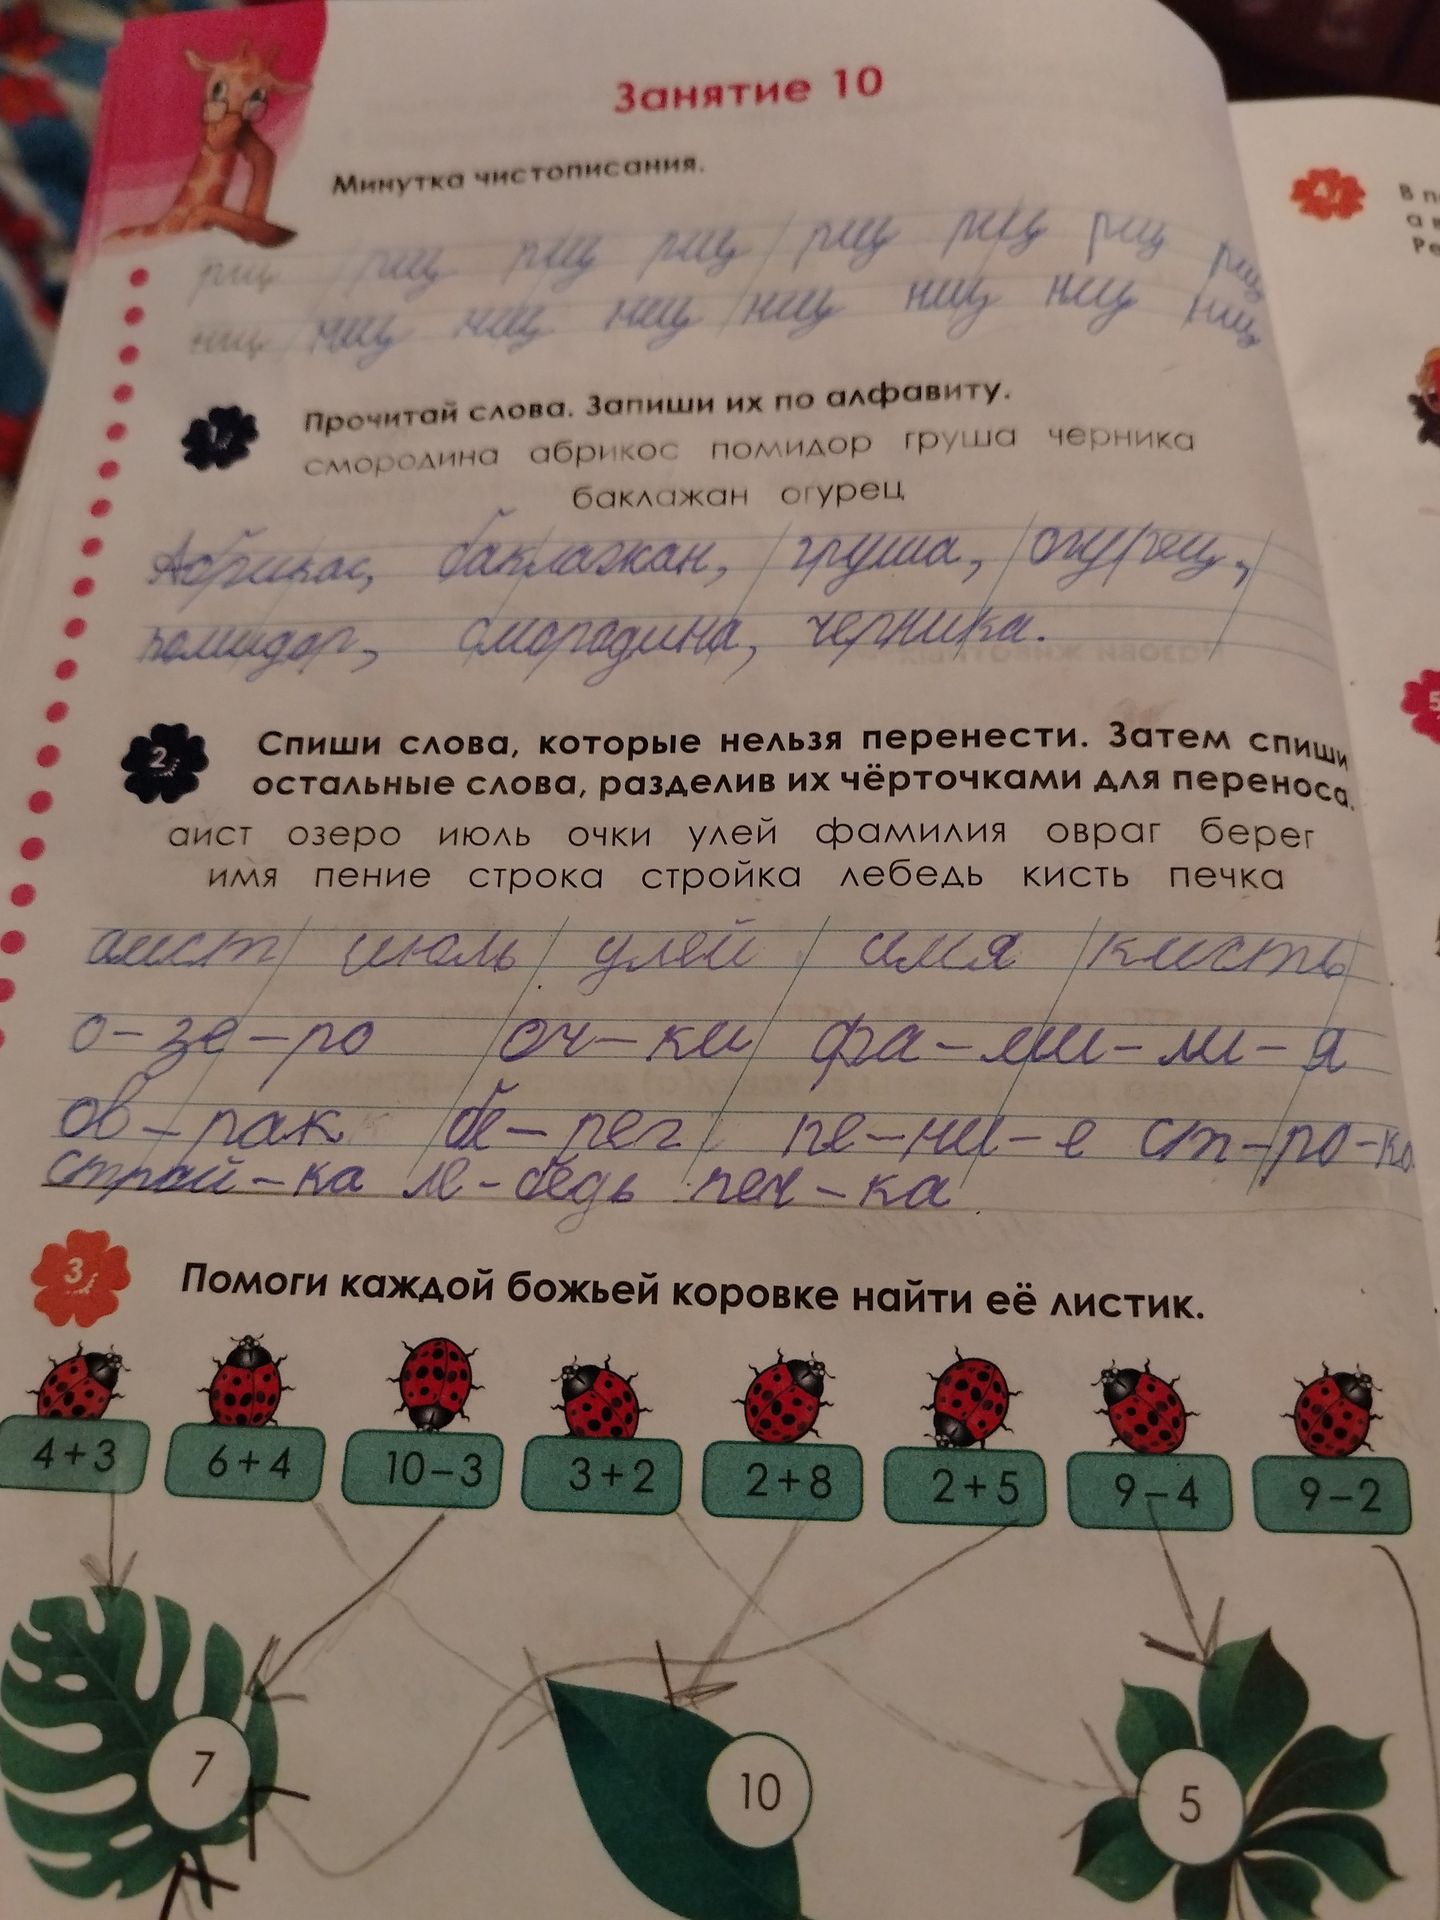 Занятие 10
Минутка чистописания.
рщ рщ рщ рщ рщ рщ рщ рщ
нщ нщ нщ нщ нщ нщ нщ нщ
1 Прочитай слова. Запиши их по алфавиту.
смородина абрикос помидор груша черника
баклажан огурец
Абрикос, баклажан, груша, огурец,
помидор, смородина, черника.
2 Спиши слова, которые нельзя перенести. Затем спиши
остальные слова, разделив их чёрточками для переноса.
аист озеро июль очки улей фамилия овраг берег
имя пение строка стройка лебедь кисть печка
аист июль улей имя кисть
о-зе-ро оч-ки фа-ми-ли-я
ов-рак бе-рег пе-ни-е ст-ро-ка
строй-ка ле-бедь печ-ка
3 Помоги каждой божьей коровке найти её листик.
4+3 6+4 10-3 3+2 2+8 2+5 9-4 9-2
7 10 5
4 В
а
Ре
5